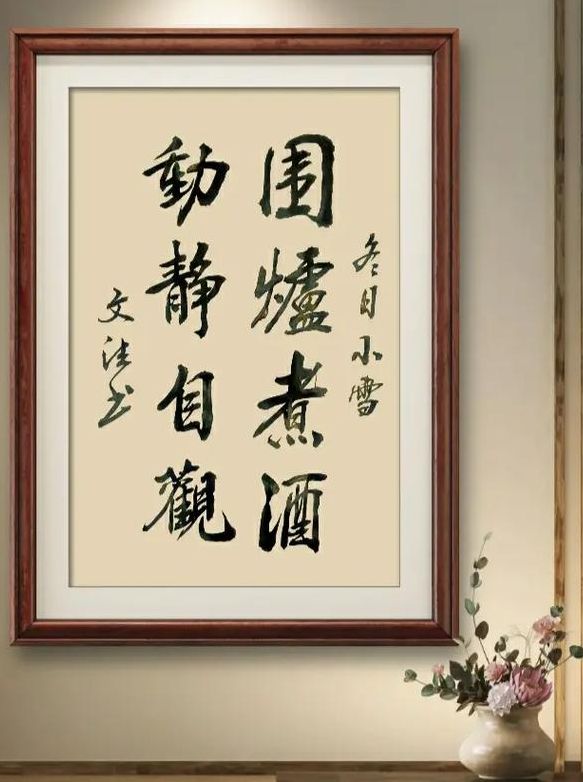 冬日小雪
围爐煮酒
動静自觀
文法书